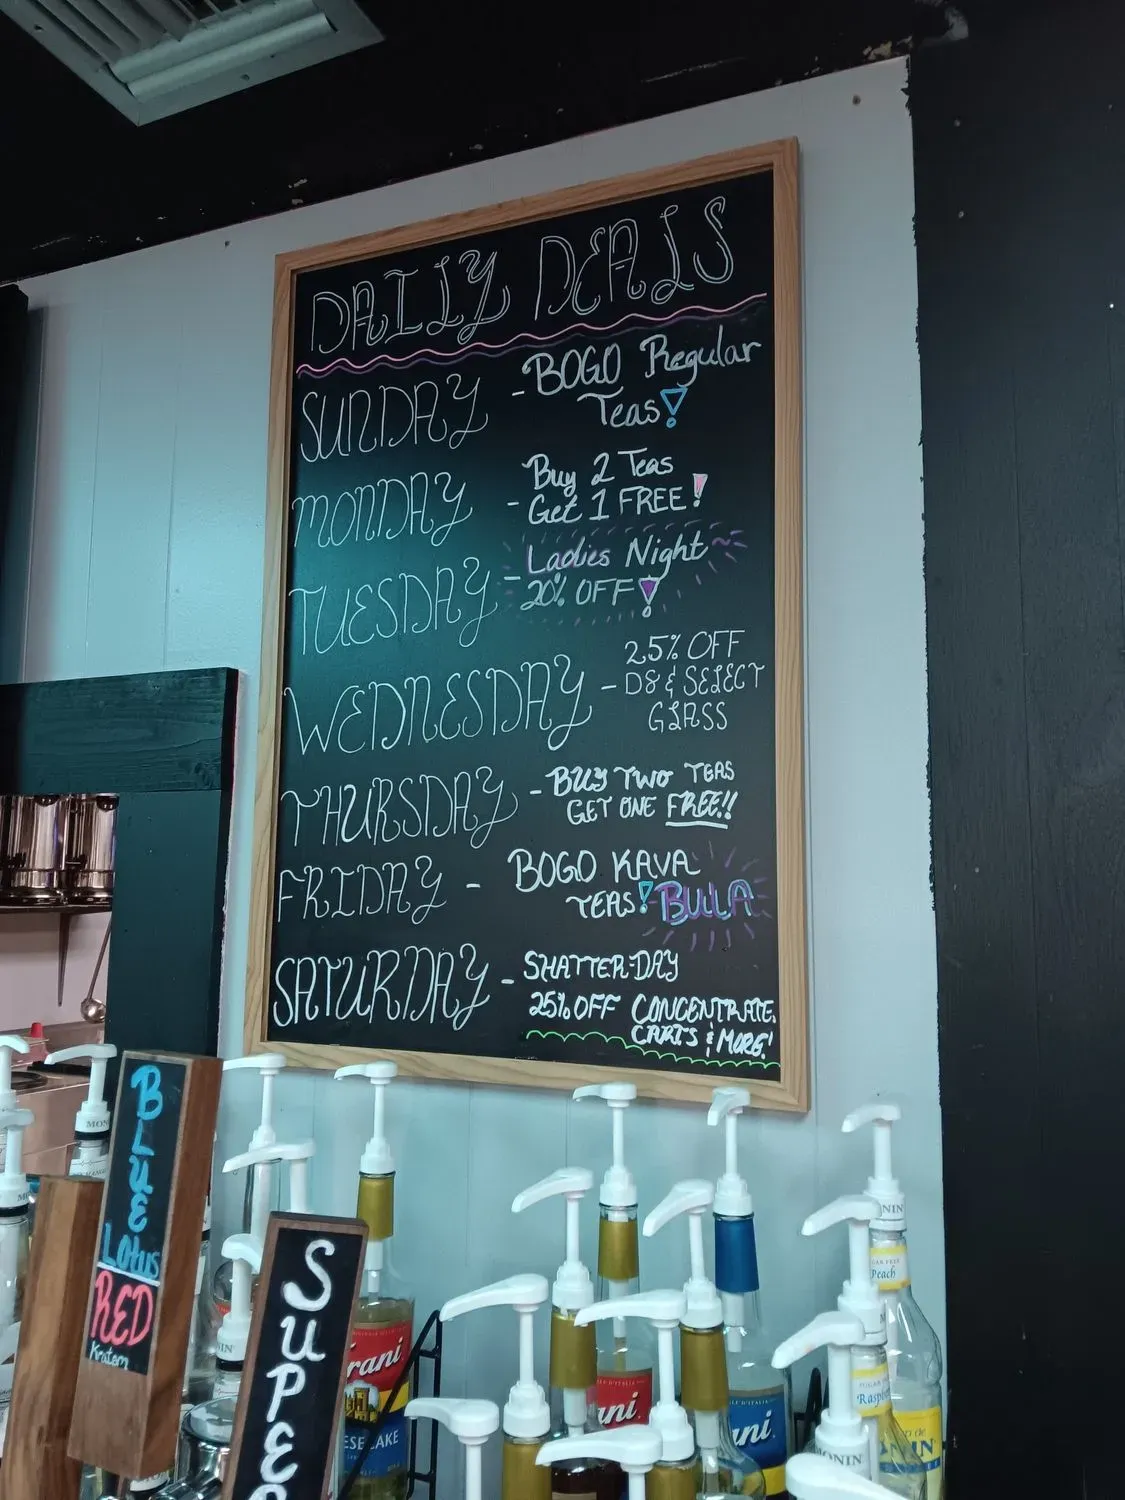 DAILY DEALS
SUNDAY - BOGO Regular
Teas!
MONDAY - Buy 2 Teas
Get 1 FREE!
TUESDAY - Ladies Night
20% OFF!
WEDNESDAY - 25% OFF
D8 & SELECT
GLASS
THURSDAY - BUY TWO TEAS
GET ONE FREE!!
FRIDAY - BOGO KAVA
TEAS! BULLA
SATURDAY - SHATTER-DAY
25% OFF CONCENTRATE,
CARTS & MORE!
BLUE
Lotus
RED
Kratom
SUPE
rani
ESECAKE
ani
ani
Peach
Rasp
MONIN
NIN
NIN